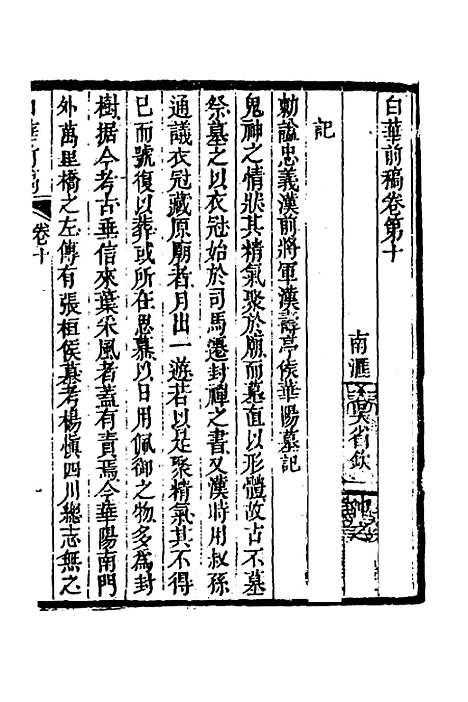 白華前稿卷第十
南滙 吳省欽 冲之
記
勅諡忠義漢前將軍漢壽亭侯華陽墓記
鬼神之情狀其精氣聚於廟而墓直以形體故古不墓
祭墓之以衣冠始於司馬遷封禪之書又漢時用叔孫
通議衣冠藏原廟者月出一遊若以是聚精氣其不得
已而號復以葬或所在思慕以日用佩御之物多為封
樹据今考古垂信來葉采風者蓋有責焉今華陽南門
外萬里橋之左傳有張桓侯墓考楊慎四川總志無之
卷十